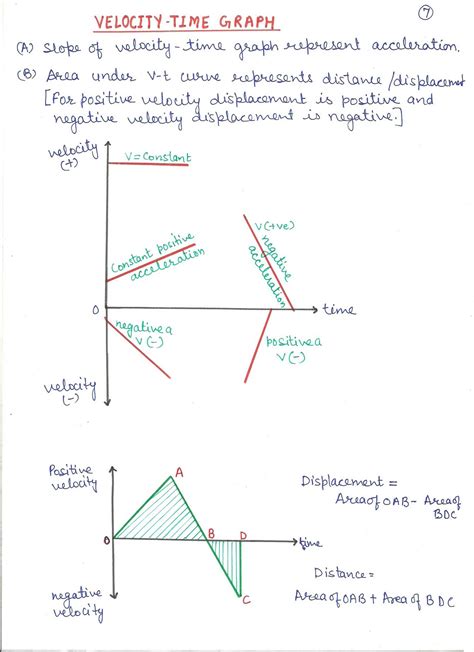 VELOCITY-TIME GRAPH
7
(A) Slope of velocity-time graph represent acceleration.
(B) Area under v-t curve represents distance/displacement
[For positive velocity displacement is positive and
negative velocity displacement is negative.]
velocity
(+)
V = Constant
Constant positive
acceleration
V(+ve)
negative
acceleration
O
time
negative a
V(-)
positive a
V(-)
velocity
(-)
Positive
velocity
A
Displacement =
Area of OAB - Area of
BDC
O
B
D
time
Distance =
negative
velocity
C
Area of OAB + Area of BDC